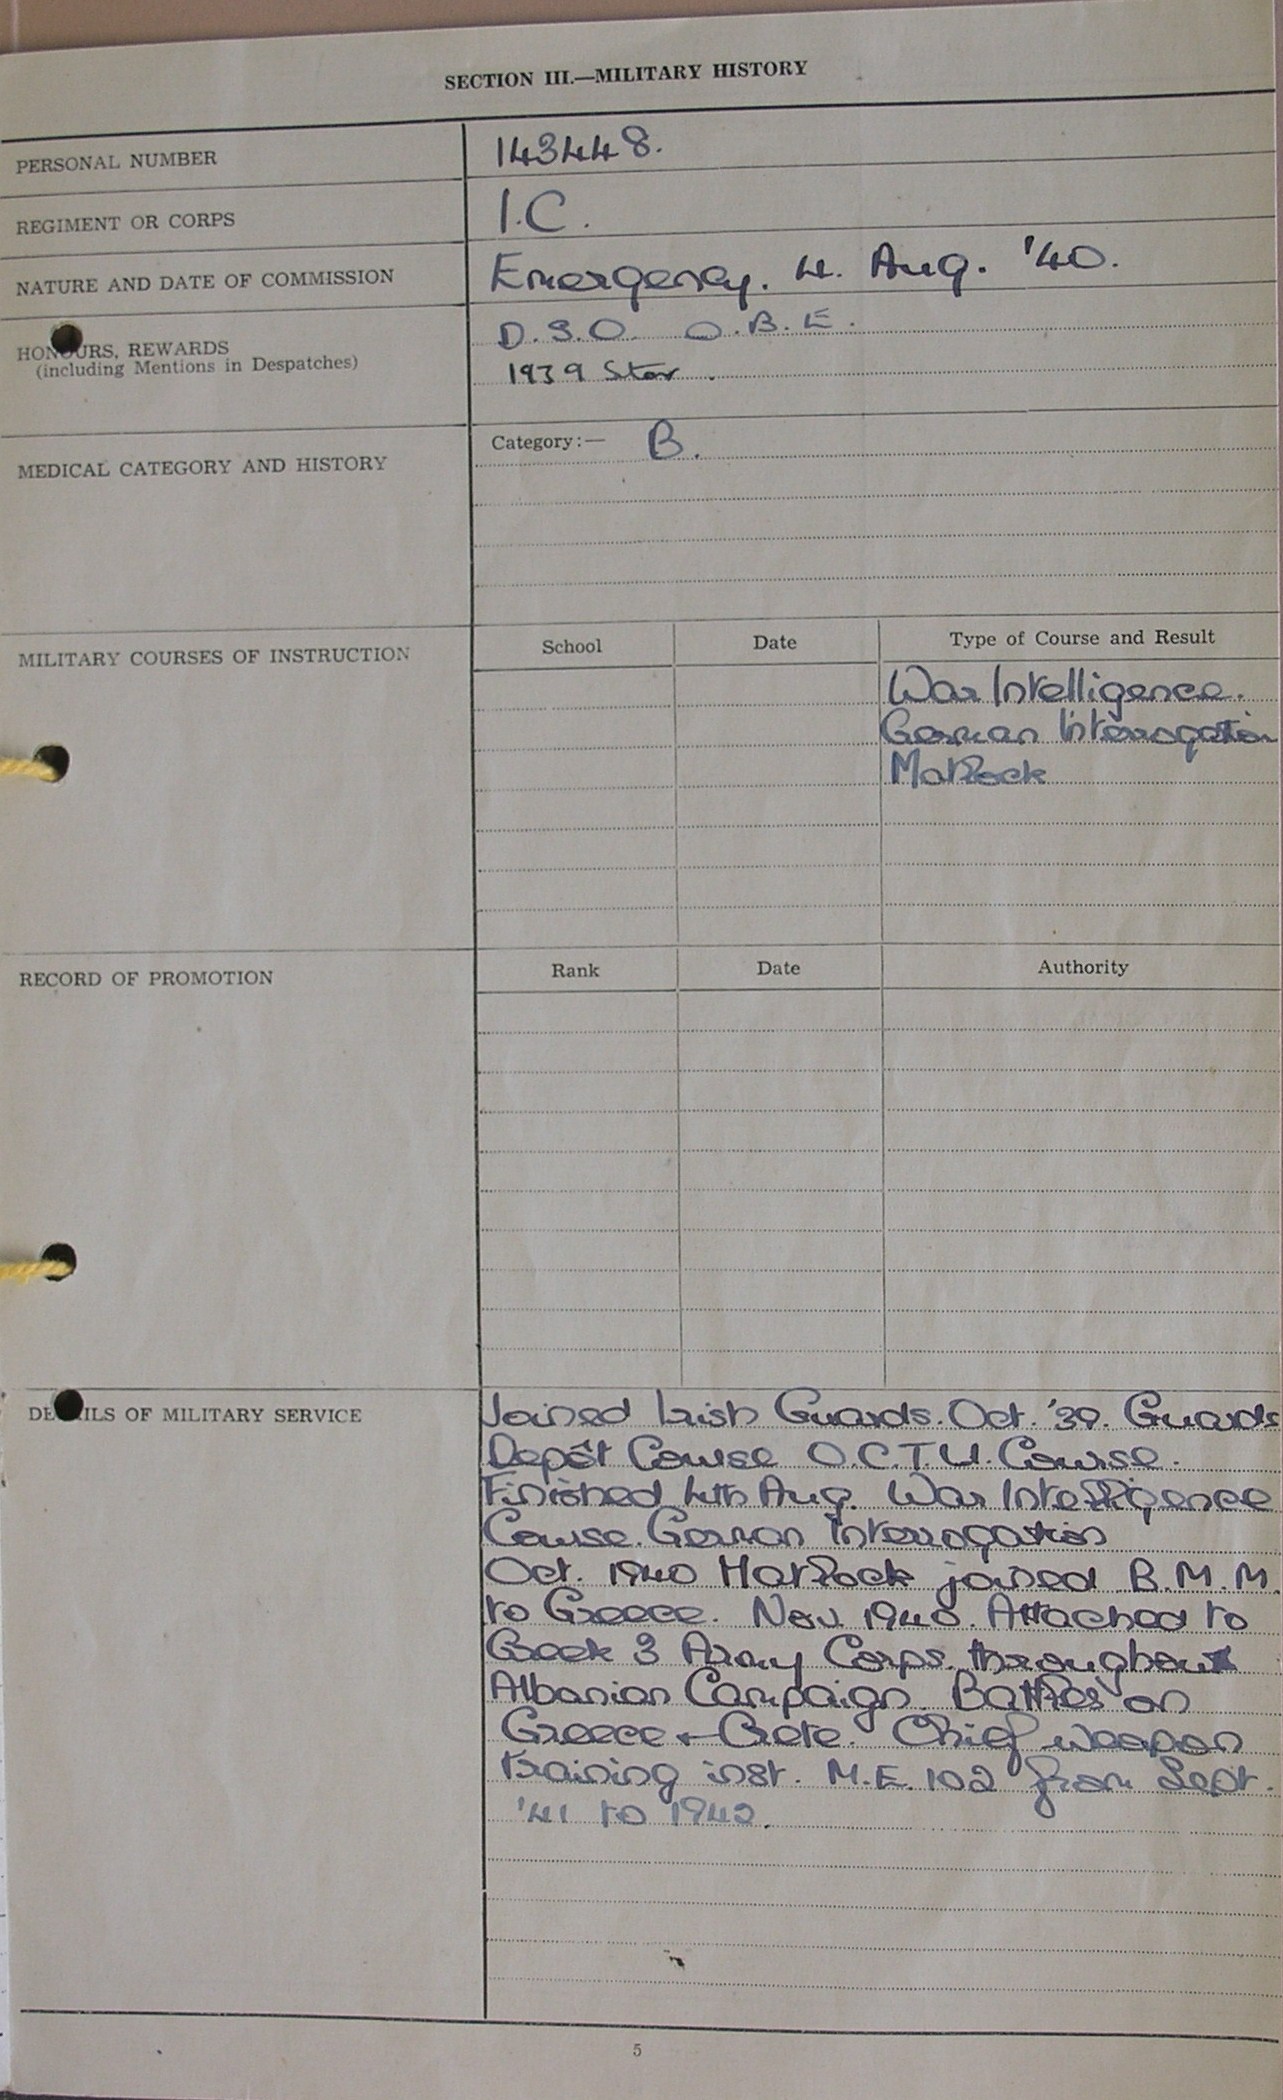 SECTION III.—MILITARY HISTORY
PERSONAL NUMBER 143448.
REGIMENT OR CORPS I.C.
NATURE AND DATE OF COMMISSION Emergency. 4. Aug. '40.
HONOURS, REWARDS D.S.O. O.B.E.
(including Mentions in Despatches) 1939 Star.
MEDICAL CATEGORY AND HISTORY Category:— B.
MILITARY COURSES OF INSTRUCTION School Date Type of Course and Result
War Intelligence.
German Interrogation
Matlock
RECORD OF PROMOTION Rank Date Authority
DETAILS OF MILITARY SERVICE Joined Irish Guards. Oct. '39. Guards
Depôt Course O.C.T.U. Course.
Finished 4th Aug. War Intelligence
Course. German Interrogation
Oct. 1940 Matlock joined B.M.M.
to Greece. Nov. 1940. Attached to
Greek 3 Army Corps. throughout
Albanian Campaign. Battles on
Greece + Crete. Chief weapon
training inst. M.E. 102 from Sept.
'41 to 1942.
5